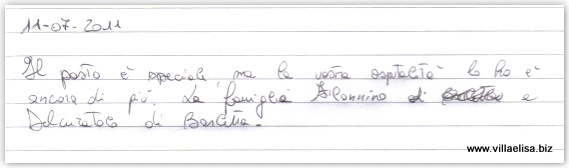 11-07-2011
Il posto è speciale, ma la vostra ospitalità lo ha è
ancora di più. La famiglia di e
di
www.villaelisa.biz